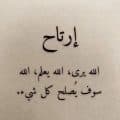 إرتاح
الله يرى، الله يعلم، الله
سوف يُصلح كل شيء..